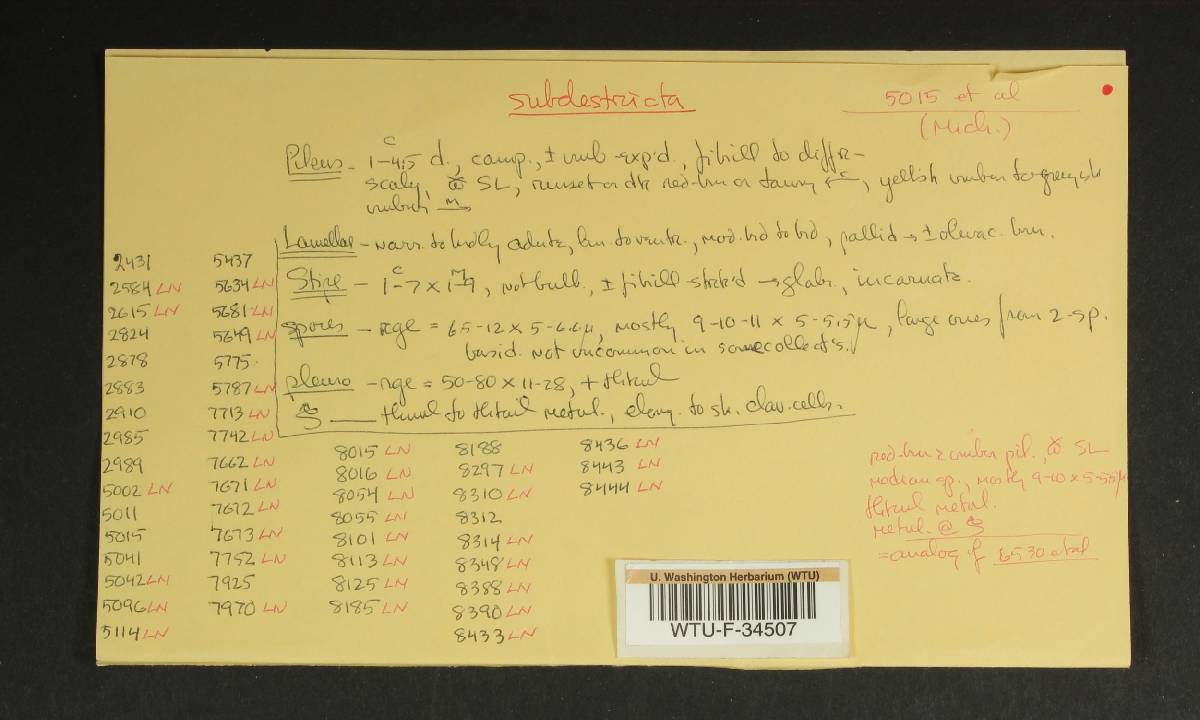 subdestricta
5015 et al
(Mich.)
Pileus - 1-4.5 d., camp., ± umb - exp'd., fibrill to diffr-
scaly, SL, russet or dk red-brn or tawny C, yellish umber to greyish
umber M
Lamellae - narr. to brdly adnate, lin. to ventr., mod. brd to brd, pallid → ± olivac. brn.
Stipe - 1-7 x 1-9, not bulb., ± fibrill-streak'd → glabr., incarnate.
spores - rge = 6.5-12 x 5-6.6µ, mostly 9-10-11 x 5-5.5µ, large ones from 2-sp.
basid. not uncommon in some collect's.
pleuro - rge = 50-80 x 11-28, + thkwl
thnwl to thkwl metul., elong. to sh. clav. cells.
2431
2584 LN
2615 LN
2824
2878
2883
2910
2985
2989
5002 LN
5011
5015
5041
5042 LN
5096 LN
5114 LN
5437
5634 LN
5681 LN
5649 LN
5775
5787 LN
7713 LN
7742 LN
7662 LN
7671 LN
7672 LN
7673 LN
7752 LN
7925
7970 LN
8015 LN
8016 LN
8054 LN
8055 LN
8101 LN
8113 LN
8125 LN
8185 LN
8188
8297 LN
8310 LN
8312
8314 LN
8348 LN
8388 LN
8390 LN
8433 LN
8436 LN
8443 LN
8444 LN
red-brn umber pil., SL
median sp., mostly 9-10 x 5-5.5µ
thkwl metul.
metul. @
= analog of 6530 et al
U. Washington Herbarium (WTU)
WTU-F-34507